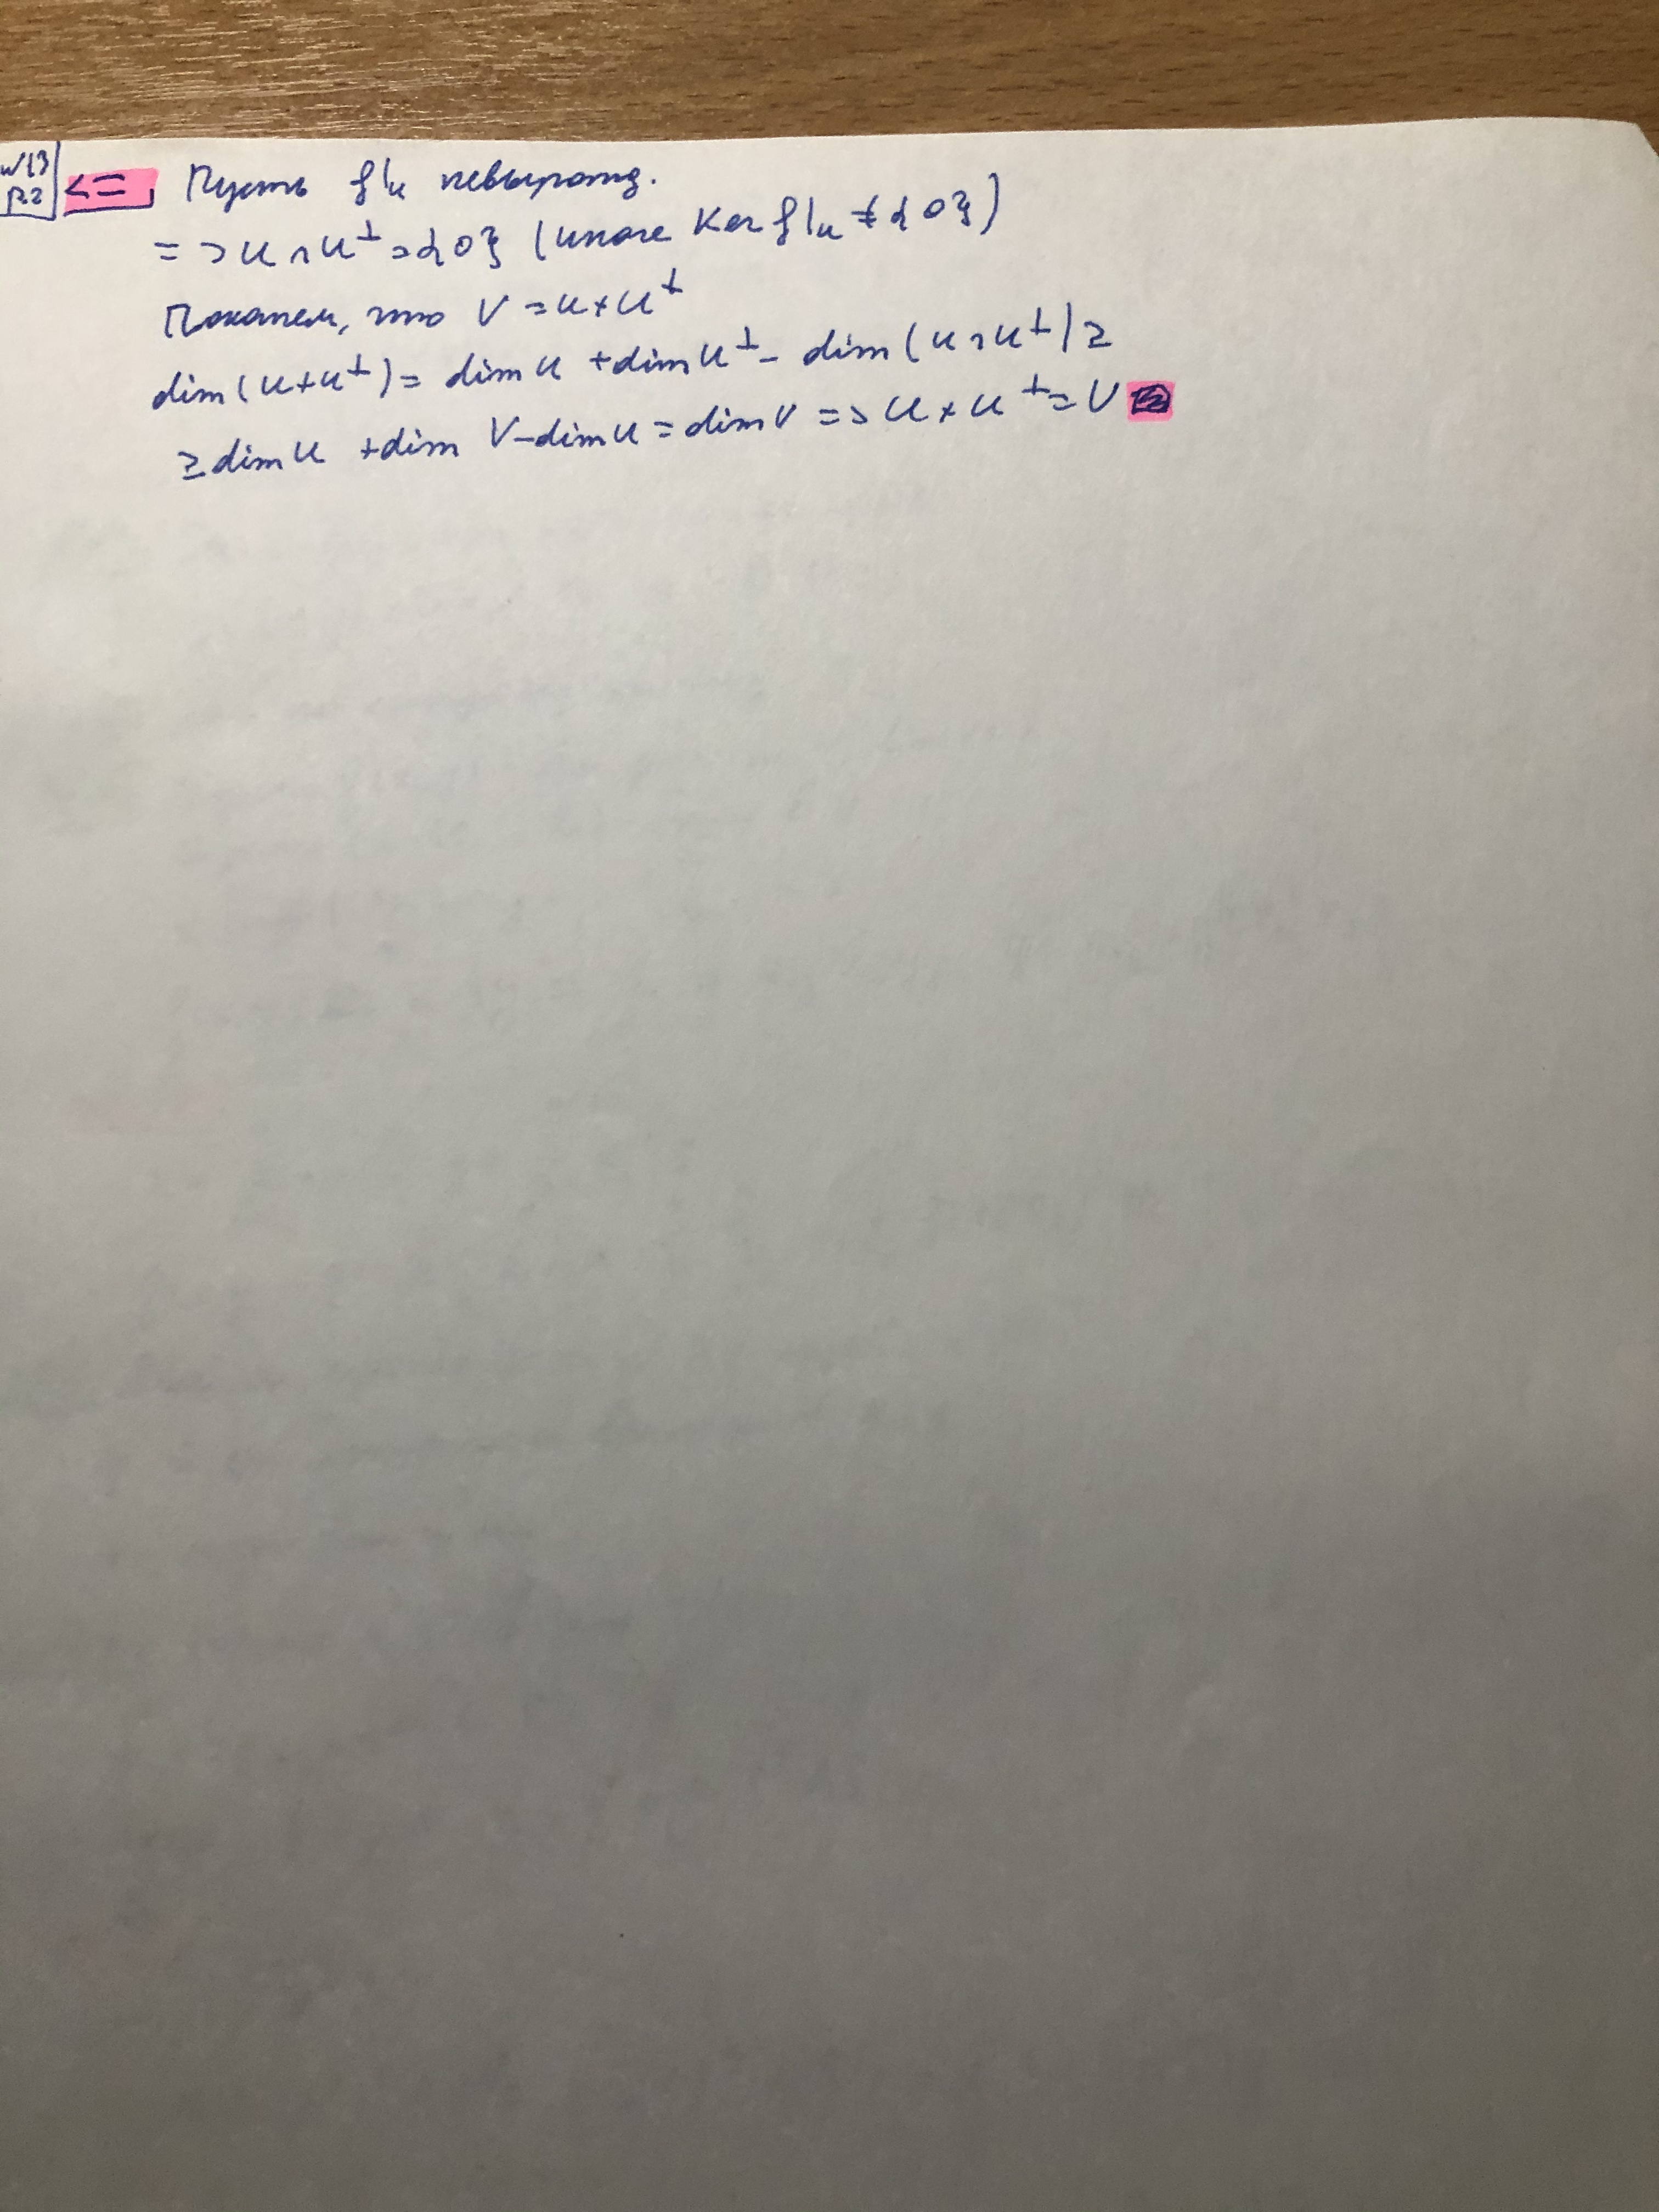 №13
p.2
<= Пусть f|u невырожд.
=> U ∩ U^⊥ = {0} (иначе Ker f|u ≠ {0})
Покажем, что V = U + U^⊥
dim(U+U^⊥) = dim U + dim U^⊥ - dim(U ∩ U^⊥) ≥
≥ dim U + dim V - dim U = dim V => U + U^⊥ = V